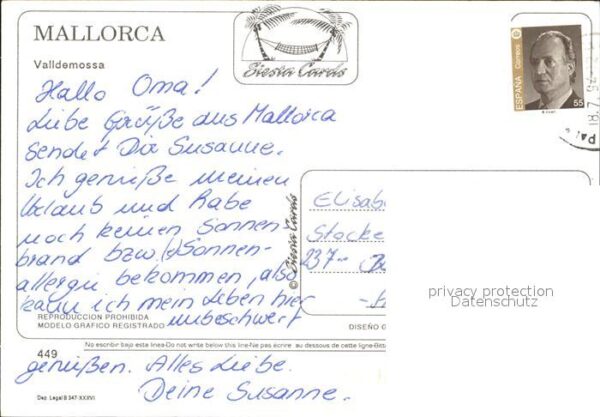 MALLORCA
Valldemossa
Siesta Cards
ESPAÑA
Correos
55
Hallo Oma!
Liebe Grüße aus Mallorca
sendet Dir Susanne.
Ich genieße meinen
Urlaub und habe
noch keinen Sonnen-
brand bzw. Sonnen-
allergie bekommen, also
kann ich mein Leben hier
unbeschwert
© Siesta Cards
Elisab
Stocke
237--
privacy protection
Datenschutz
REPRODUCCION PROHIBIDA
MODELO GRAFICO REGISTRADO
DISEÑO G
No escribir bajo esta linea-Do not write below this line-Ne pas écrire au dessous de cette ligne-Bitte
449
genießen. Alles Liebe.
Deine Susanne.
Dep. Legal B 347-XXXVI